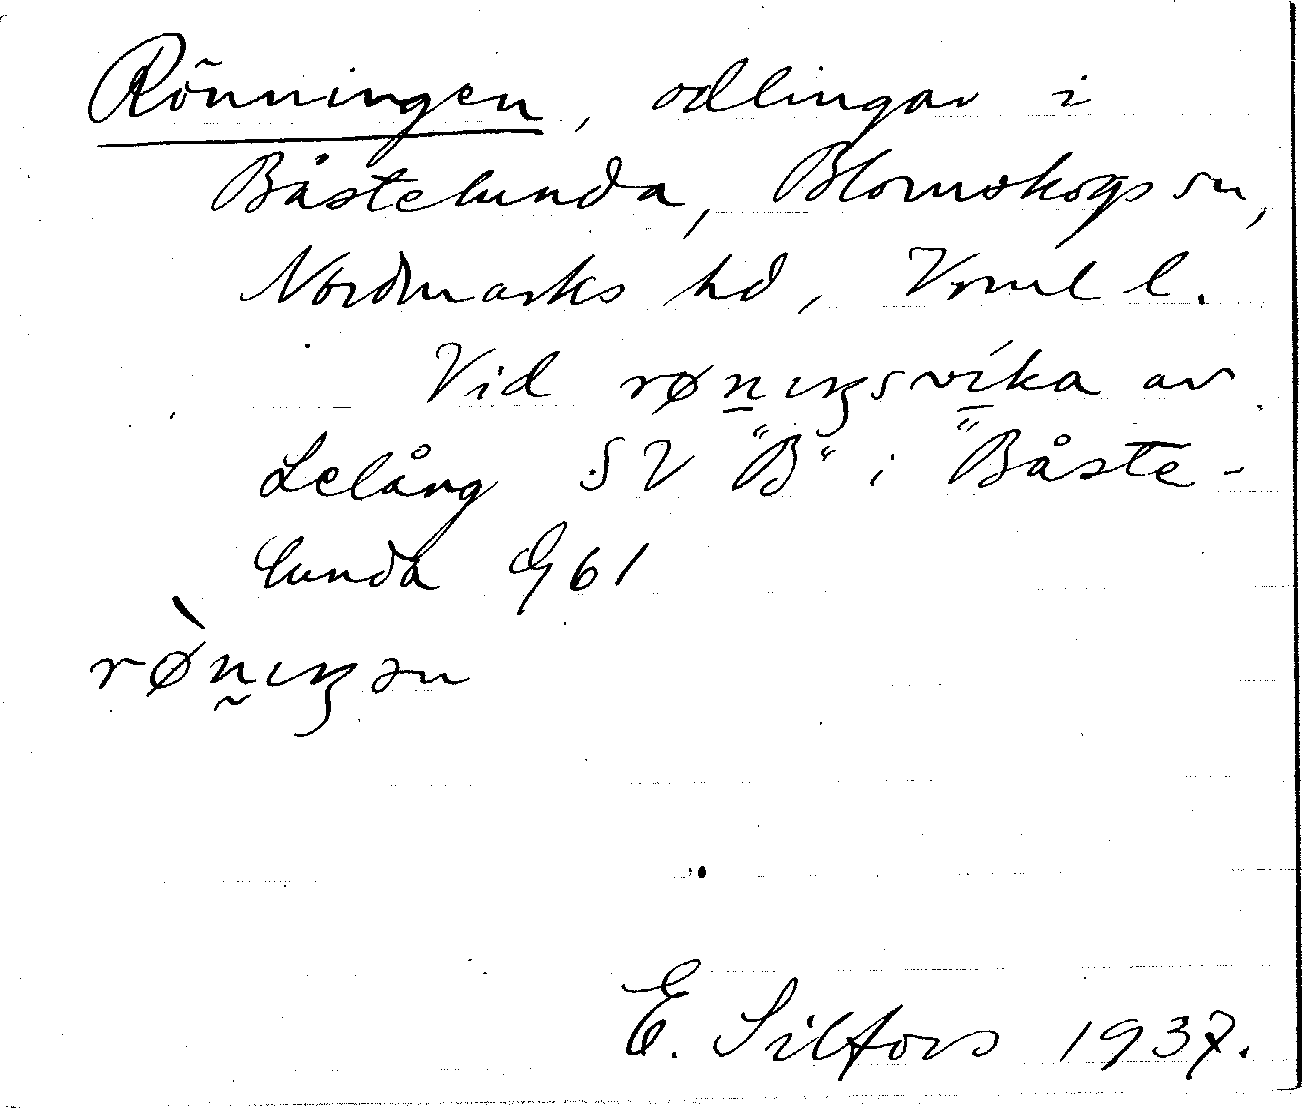 Rönningen, odlingar i
Båstelunda, Blomskogs sn,
Nordmarks hd, Vrml l.
Vid røn̲ıŋsvı̲́ka av
Lelång SV "B" i "Båste-
lunda G61
rø̀n̰ıŋən
E. Silfors 1937.